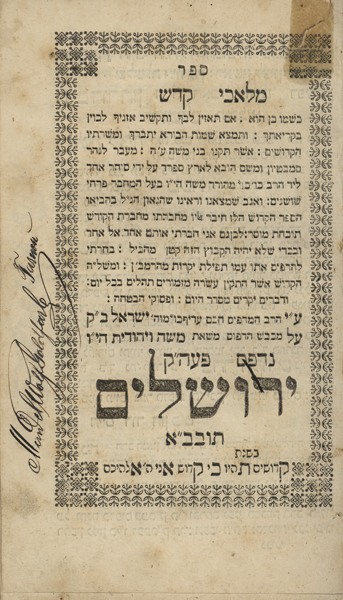 ספר
מלאכי קדש
בשמו בן הוא. אם תאזין לבך ותקשיב אזניך לכוין
בקריאתך: ותמצא שמות הבורא יתברך ומשרתיו
הקדושים: אשר תקנו בני משה ע"ה: מעבר לנהר
סמבטיון ומשם הובא לארץ ספרד על ידי סוחר אחד
ליד הרב משה הי"ו בעל המחבר פרחי
שושנים: ואגב שמצאנו וראינו שהגאון הנ"ל בהביאו
הספר הקדוש הלז חיבר מחברת הקודש
תוכחת מוסר: לכן גם אני חברתי אותם אחד אל אחד
ובכדי שלא יהיה הקבוץ הזה קטן מהכיל: בחרתי
להדפיס אתו עמו תפילת יקרות מהרמב"ן: ומשל"ה
הקדוש אשר התקין עשרה מזמורים תהלים בכל יום:
ודברים יקרים מסדר היום: ופסוקי הבטחה:
ע"י הרב המדפיס חכם ישראל ב"ק
על מכבש הדפוס משאת משה ויהודית הי"ו
נדפס פעה"ק
ירושלים
תובב"א
בשנת
קדושים תהיו כי קדוש אני ה' אלהיכם